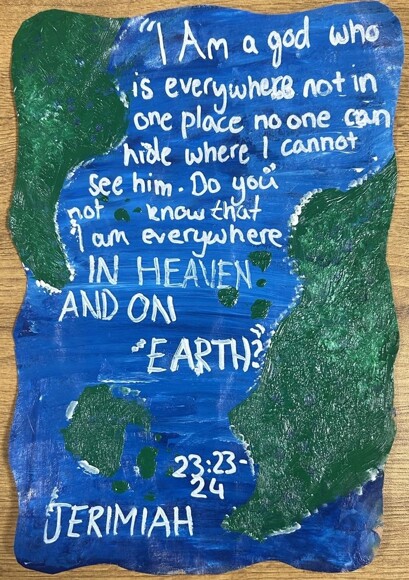 "I Am a god who
is everywhere not in
one place no one can
hide where I cannot
see him. Do you
not know that
I am everywhere
IN HEAVEN
AND ON
"EARTH?"
23:23-
24
JERIMIAH